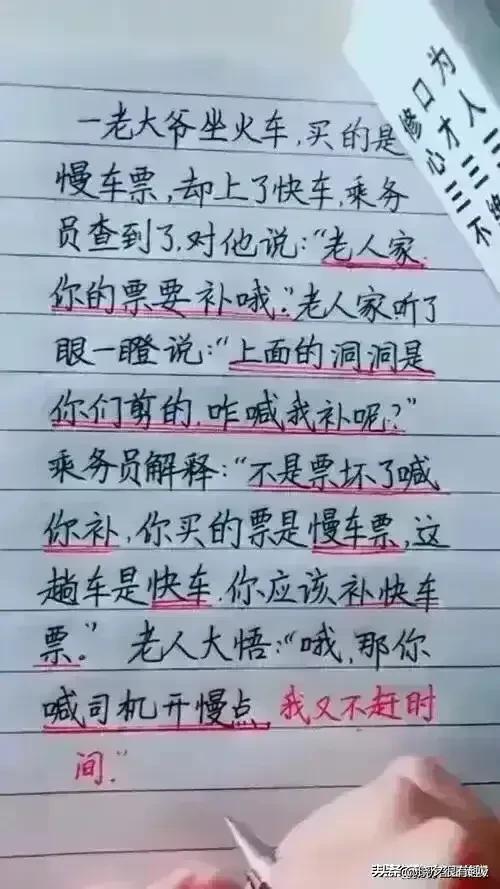 一老大爷坐火车,买的是
慢车票,却上了快车,乘务
员查到了,对他说:“老人家,
你的票要补哦。”老人家听了
眼一瞪说:“上面的洞洞是
你们剪的,咋喊我补呢?”
乘务员解释:“不是票坏了喊
你补,你买的票是慢车票,这
趟车是快车,你应该补快车
票。”老人大悟:“哦,那你
喊司机开慢点,我又不赶时
间。”
为人三
口才三
修心三
不